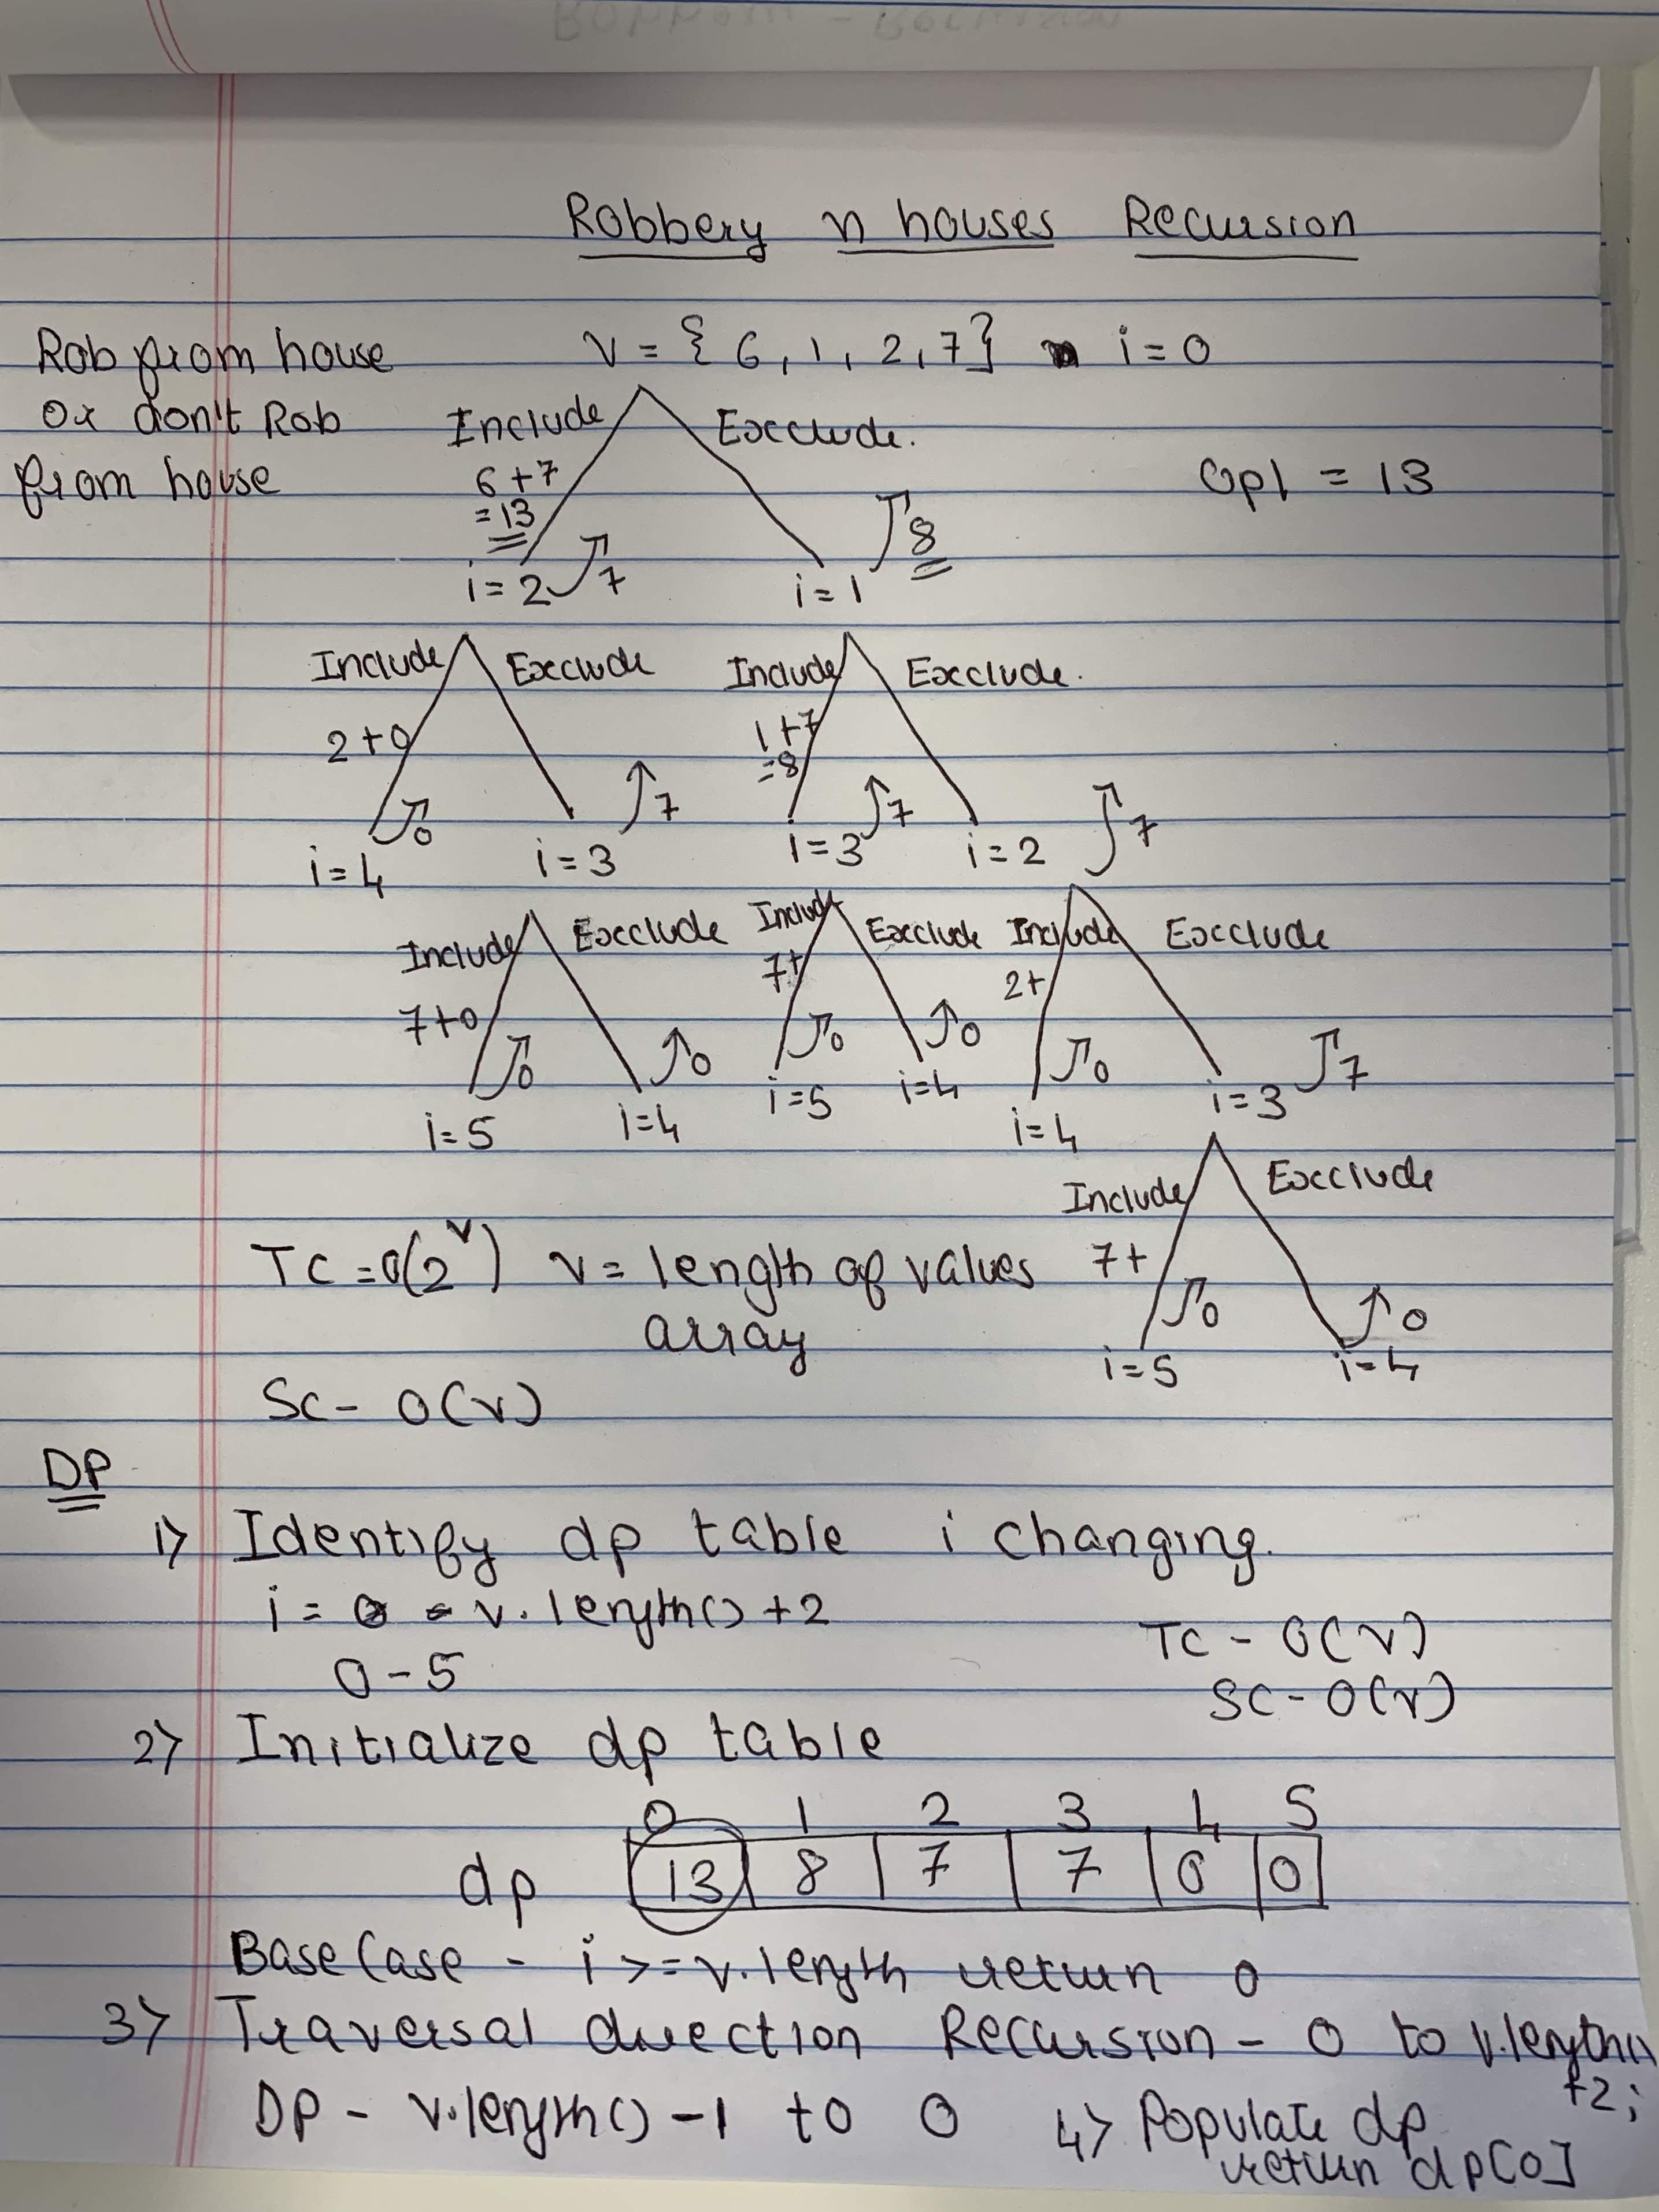 Robbery n houses Recursion
Rob from house
or don't Rob
from house
v = { 6, 1, 2, 7 } i = 0
Include Exclude.
6 + 7
= 13
8
Opl = 13
i = 2 7 i = 1
Include Exclude Include Exclude.
2 + 0 1 + 7
= 8
0 7 7 7
i = 4 i = 3 i = 3 i = 2
Include Exclude Include Exclude Include Exclude
7 + 0 7+ 2+
0 0 0 0 0 7
i = 5 i = 4 i = 5 i = 4 i = 4 i = 3
Include Exclude
7+
0 0
i = 5 i = 4
TC = O(2^v) v = length of values
array
SC - O(v)
DP
1> Identify dp table i changing.
i = 0 - v.length() + 2
0 - 5
TC - O(v)
SC - O(v)
2> Initialize dp table
0 1 2 3 4 5
dp 13 8 7 7 0 0
Base Case - i >= v.length return 0
3> Traversal direction Recursion - 0 to v.length()
+2;
DP - v.length() - 1 to 0
4> Populate dp
return dp[0]